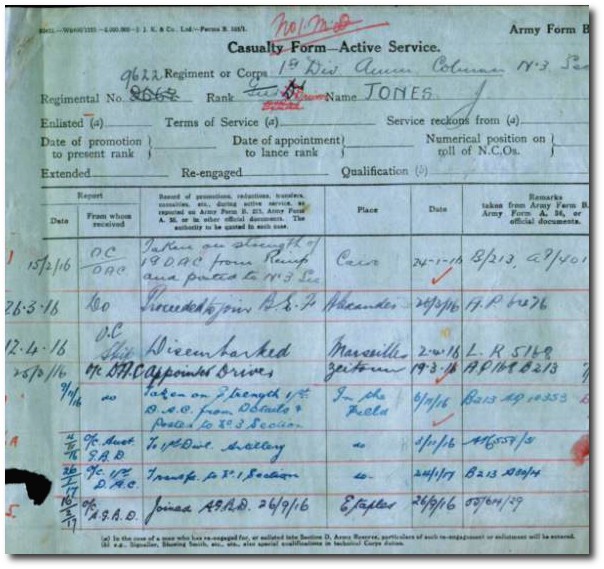 No/ M.D
Army Form B
Casualty Form—Active Service.
9622 Regiment or Corps 1st Div Amm. Column N.3 Sec
Regimental No. Rank Driver Name JONES J
Enlisted (a) Terms of Service (a) Service reckons from (a)
Date of promotion to present rank } Date of appointment to lance rank } Numerical position on roll of N.C.Os. }
Extended Re-engaged Qualification (b)
Report
Date
From whom received
Record of promotions, reductions, transfers, casualties, etc., during active service, as reported on Army Form B. 213, Army Form A. 36, or in other official documents. The authority to be quoted in each case.
Place
Date
Remarks taken from Army Form B. Army Form A. 36, or official documents.
15/2/16 OC DAC Taken on strength of 1st DAC from and posted to N:3 Sec Cairo 24-1-16 B/213
26.3.16 Do Proceeded to join B.E.F Alexandria 26/3/16
12.4.16 O.C Ship Disembarked Marseilles 2-4-16 L.R 5168
O/c DAC appointed Driver Zeitoun 19.3.16 B213
do Taken on Strength 1st D.A.C. from Details & Posted to No 3 Section In the Field B213
O/c Aust. G.B.D To 1st Divl. Artillery do
O/C. 1st D.A.C. Transf. to No 1 Section do 24/1/17 B213
O/c A.G.B.D. Joined A.G.B.D. 26/9/16 Etaples 26/9/16
(a) In the case of a man who has re-engaged for, or enlisted into Section D, Army Reserve, particulars of such re-engagement or enlistment will be entered.
(b) e.g., Signaller, Shoeing Smith, etc., etc., also special qualifications in technical Corps duties.